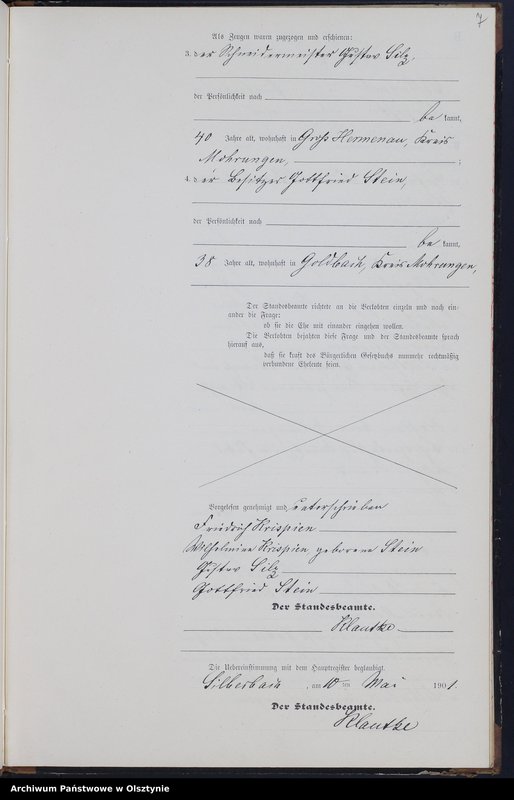 7
Als Zeugen waren zugezogen und erschienen:
3. der Schneidermeister Gustav Silz,
der Persönlichkeit nach
be kannt,
40 Jahre alt, wohnhaft in Groß Hermenau, Kreis
Mohrungen, ;
4. der Besitzer Gottfried Stein,
der Persönlichkeit nach
be kannt,
38 Jahre alt, wohnhaft in Goldbach, Kreis Mohrungen,
Der Standesbeamte richtete an die Verlobten einzeln und nach ein-
ander die Frage:
ob sie die Ehe mit einander eingehen wollen.
Die Verlobten bejahten diese Frage und der Standesbeamte sprach
hierauf aus,
daß sie kraft des Bürgerlichen Gesetzbuchs nunmehr rechtmäßig
verbundene Eheleute seien.
Vorgelesen, genehmigt und unterschrieben
Friedrich Krispien
Wilhelmine Krispien geborene Stein
Gustav Silz
Gottfried Stein
Der Standesbeamte.
Klautke
Die Uebereinstimmung mit dem Hauptregister beglaubigt.
Silberbach, am 10ten Mai 1901.
Der Standesbeamte.
Klautke
Archiwum Państwowe w Olsztynie